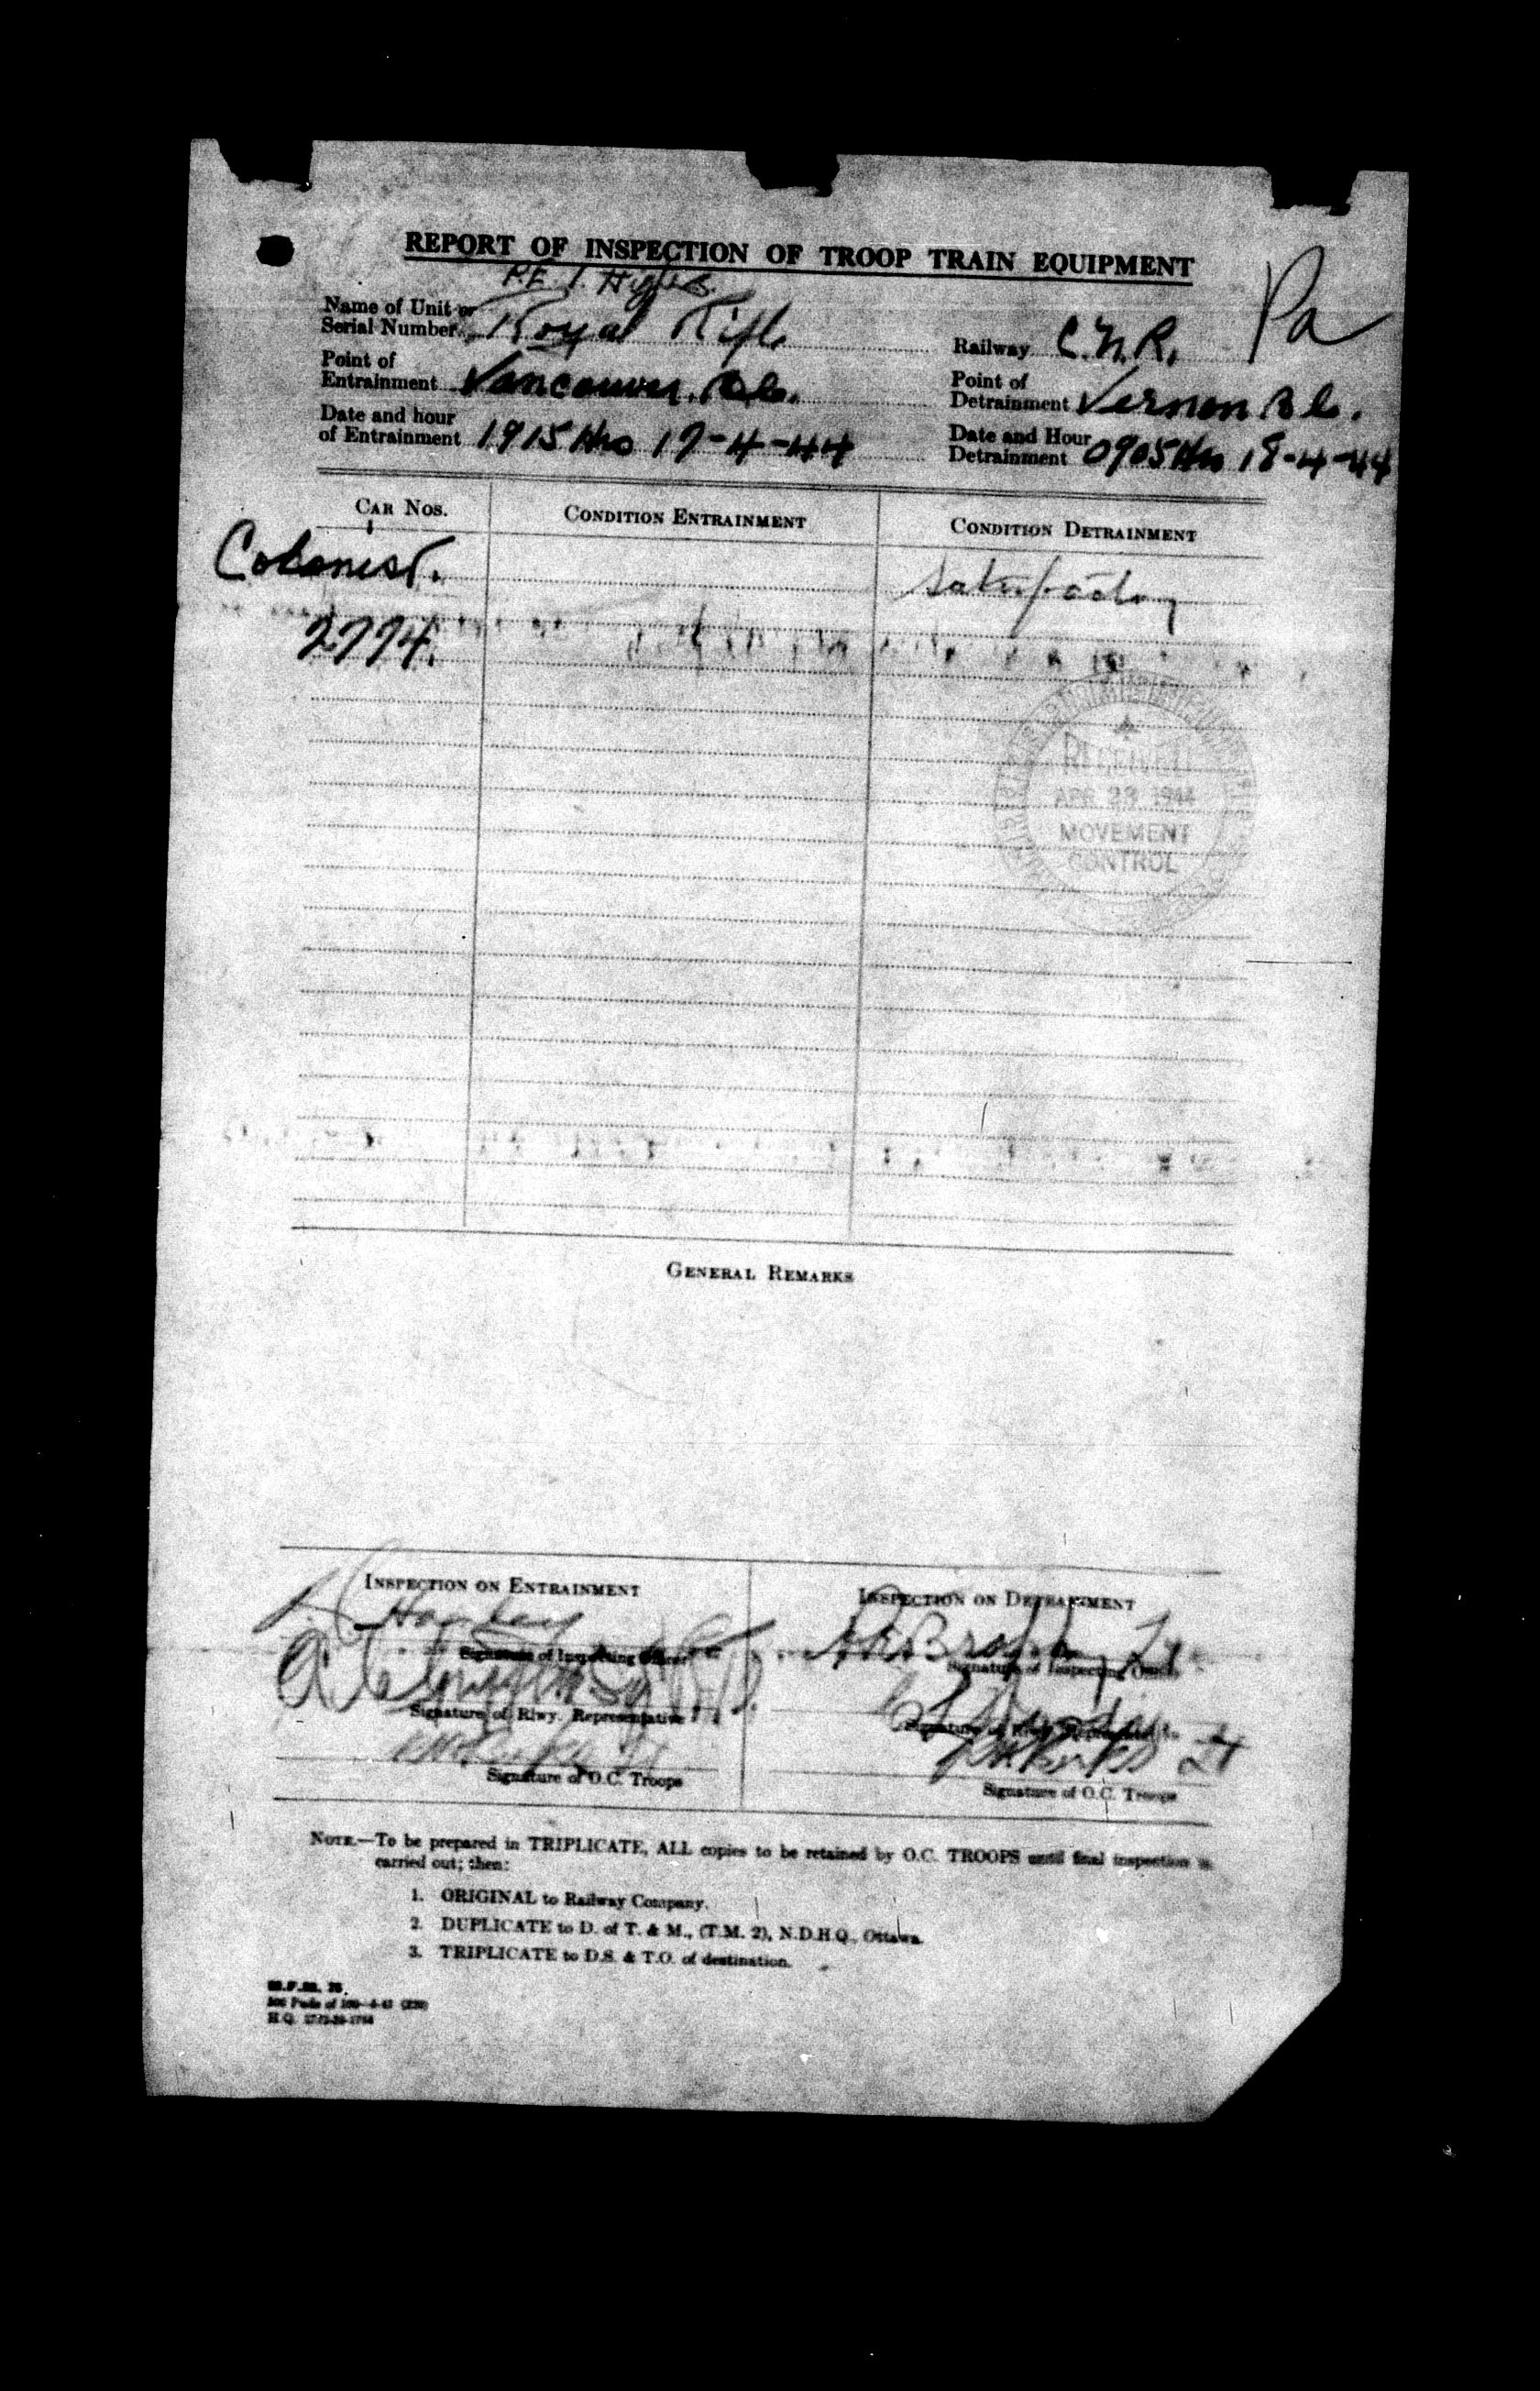 REPORT OF INSPECTION OF TROOP TRAIN EQUIPMENT
P.E.I. Hghrs.
Pa
Name of Unit or
Serial Number Royal Rifle
Railway C.N.R.
Point of
Entrainment Vancouver. B.C.
Point of
Detrainment Vernon B.C.
Date and hour
of Entrainment 1915 Hrs 17-4-44
Date and Hour
Detrainment 0905 Hrs 18-4-44
CAR NOS.
CONDITION ENTRAINMENT
CONDITION DETRAINMENT
Colonist.
Satisfactory
2774.
RECEIVED
APR 23 1944
MOVEMENT
CONTROL
GENERAL REMARKS
INSPECTION ON ENTRAINMENT
INSPECTION ON DETRAINMENT
Signature of Inspecting Officer
Signature of Inspecting Officer
Signature of Rlwy. Representative
Signature of Rlwy. Representative
Signature of O.C. Troops
Signature of O.C. Troops
NOTE.—To be prepared in TRIPLICATE, ALL copies to be retained by O.C. TROOPS until final inspection is
carried out; then:
1. ORIGINAL to Railway Company.
2. DUPLICATE to D. of T. & M., (T.M. 2), N.D.H.Q., Ottawa.
3. TRIPLICATE to D.S. & T.O. of destination.
H.Q.